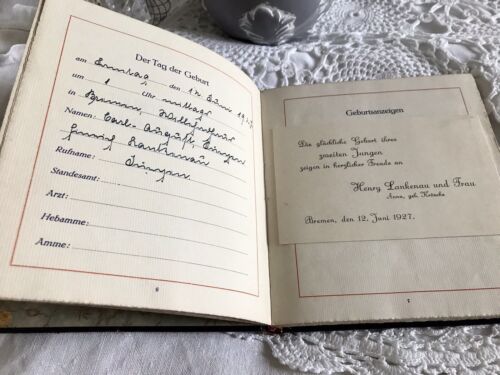 Der Tag der Geburt
am Sonntag den 12. Juni 1927
um 1 Uhr mittags
in Bremen,
Namen: Carl-August, Jürgen
Henry Lankenau
Rufname: Jürgen
Standesamt:
Arzt:
Hebamme:
Amme:
6
Geburtsanzeigen
Die glückliche Geburt ihres
zweiten Jungen
zeigen in herzlicher Freude an
Henry Lankenau und Frau
Anna, geb. Kotzche
Bremen, den 12. Juni 1927.